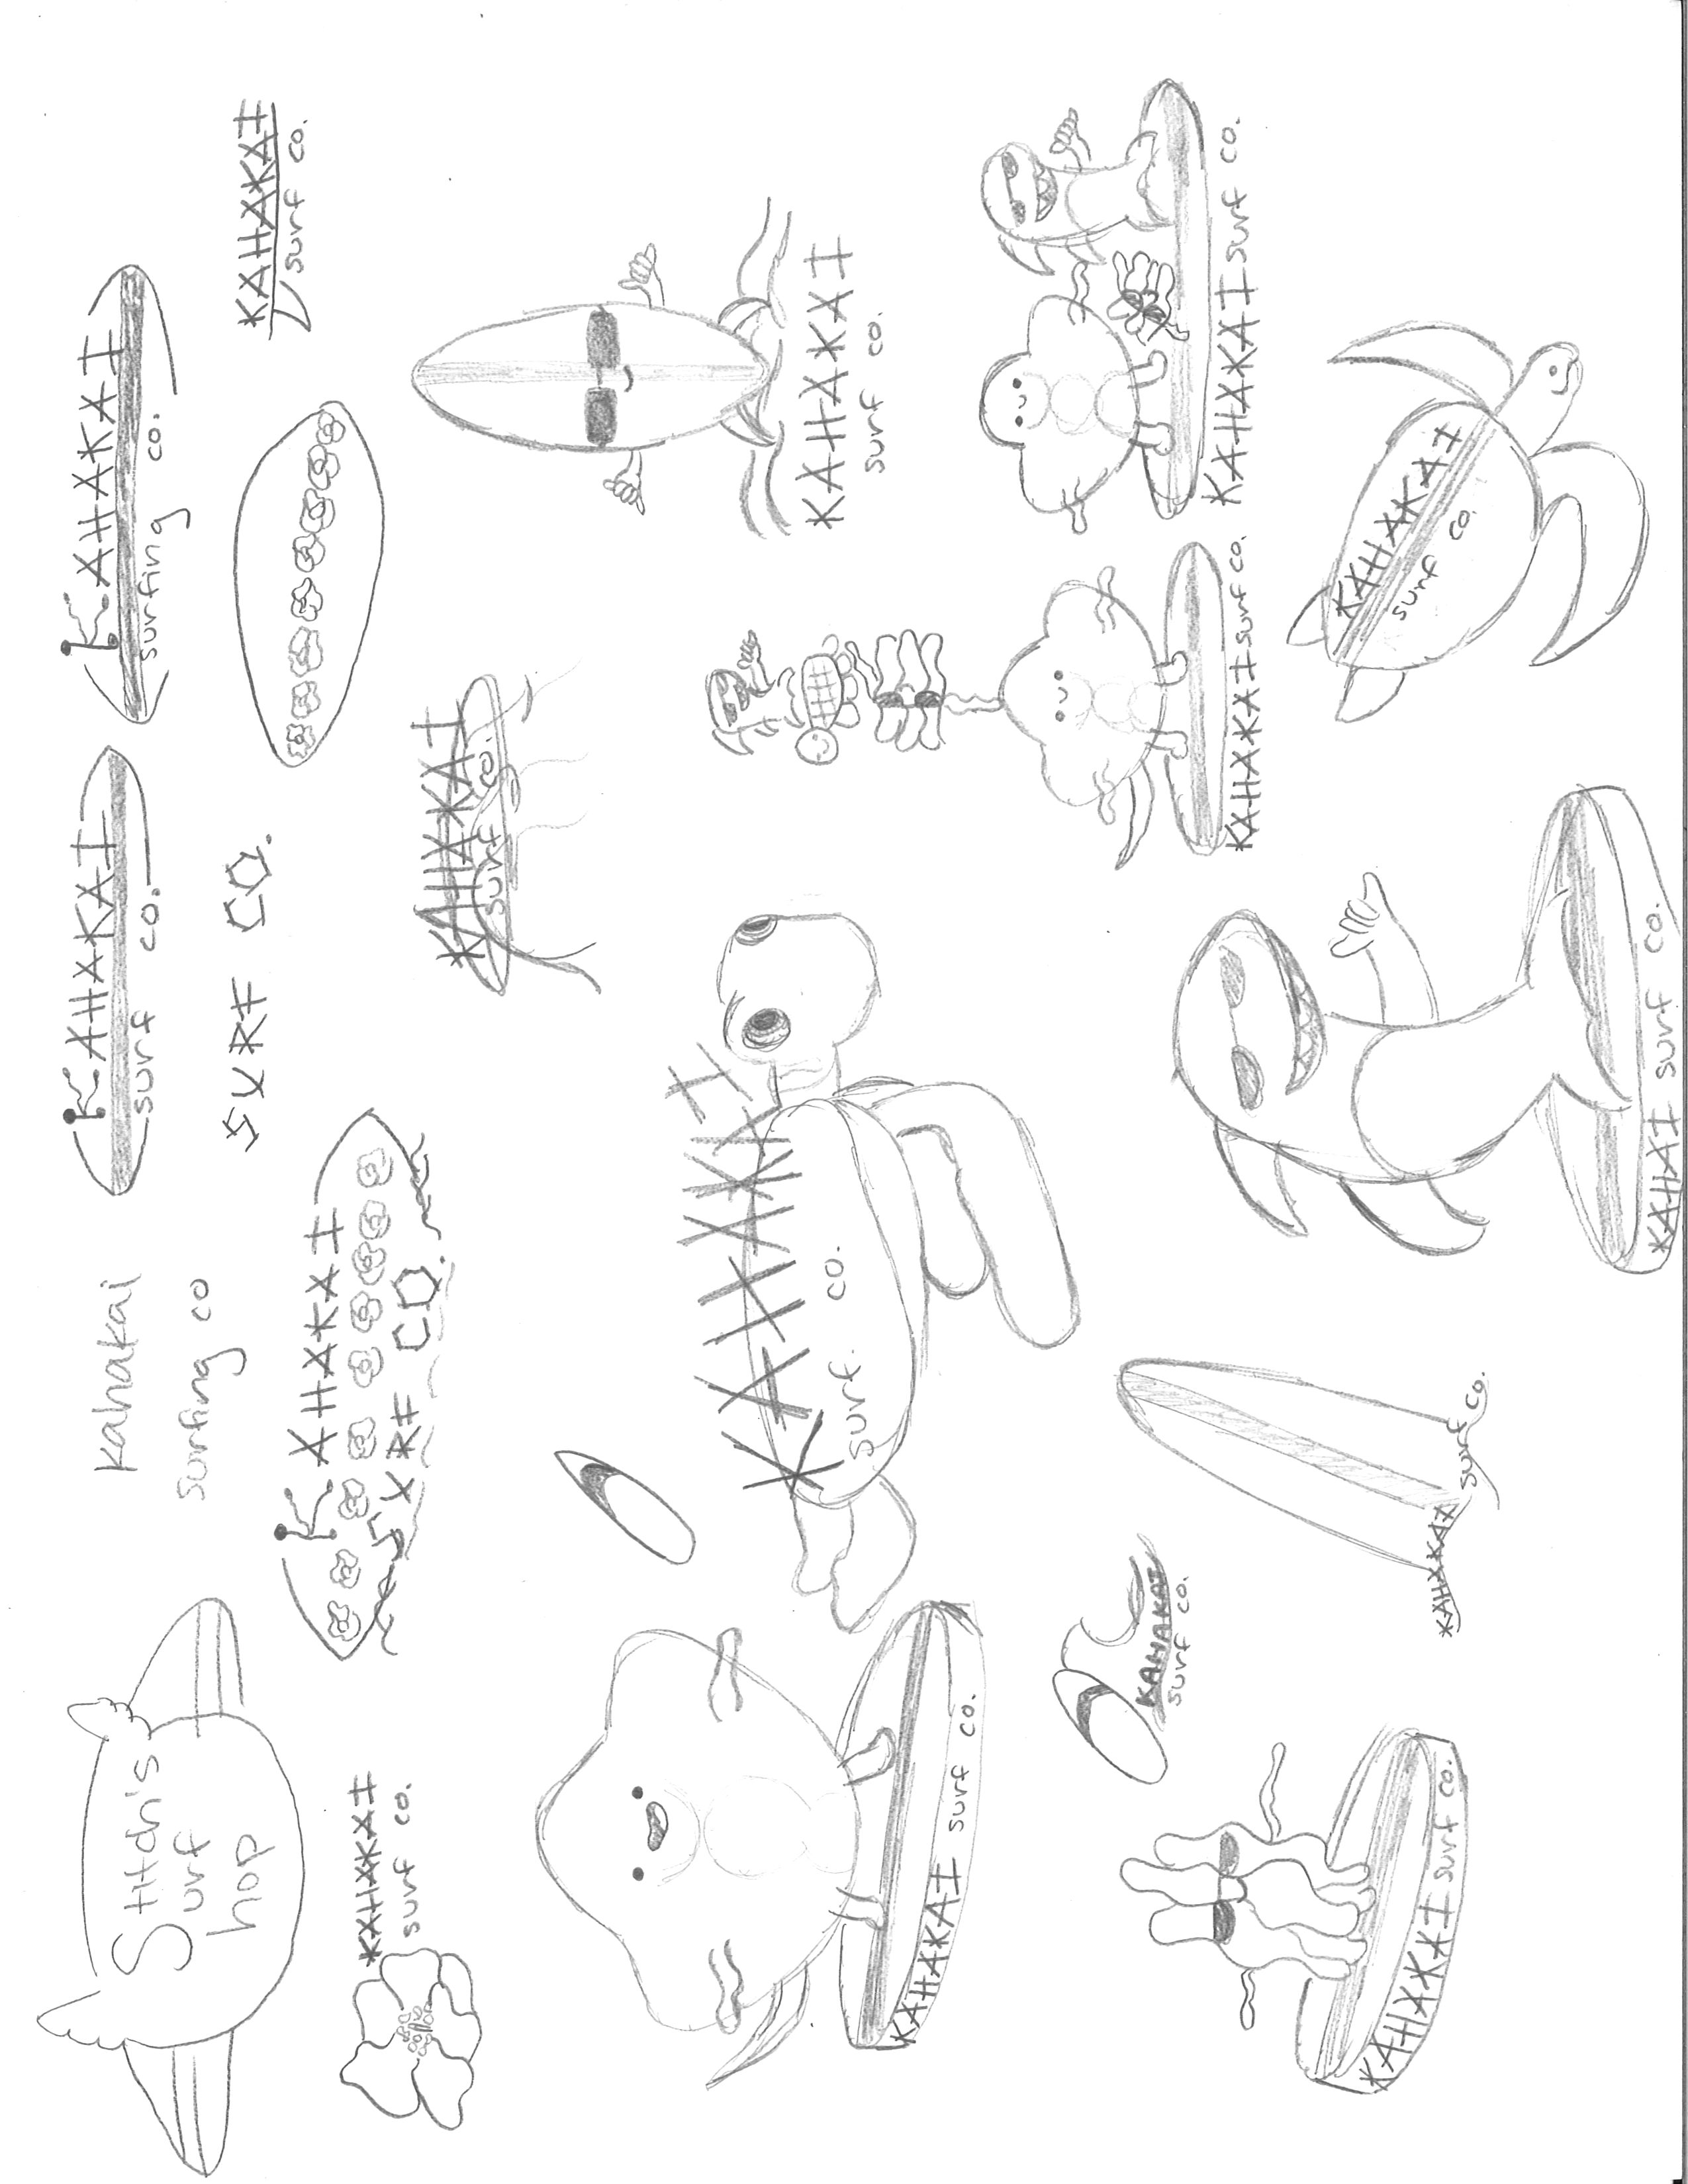 Stitch's
urf
hop
kahakai
surfing co
KAHAKAI
surf co.
KAHAKAI
surfing co.
KAHAKAI
surf co.
KAHAKAI
SURF CO.
SURF CO.
KAHAKAI
surf co.
KAHAKAI
surf co.
KAHAKAI
surf co.
KAHAKAI surf co.
KAHAKAI
surf. co.
KAHAKAI surf co.
KAHAKAI surf co.
KAHAKAI surf co.
KAHAKAI
surf co.
KAHAKAI surf co.
KAHAI surf co.
KAHAKAI
surf co.